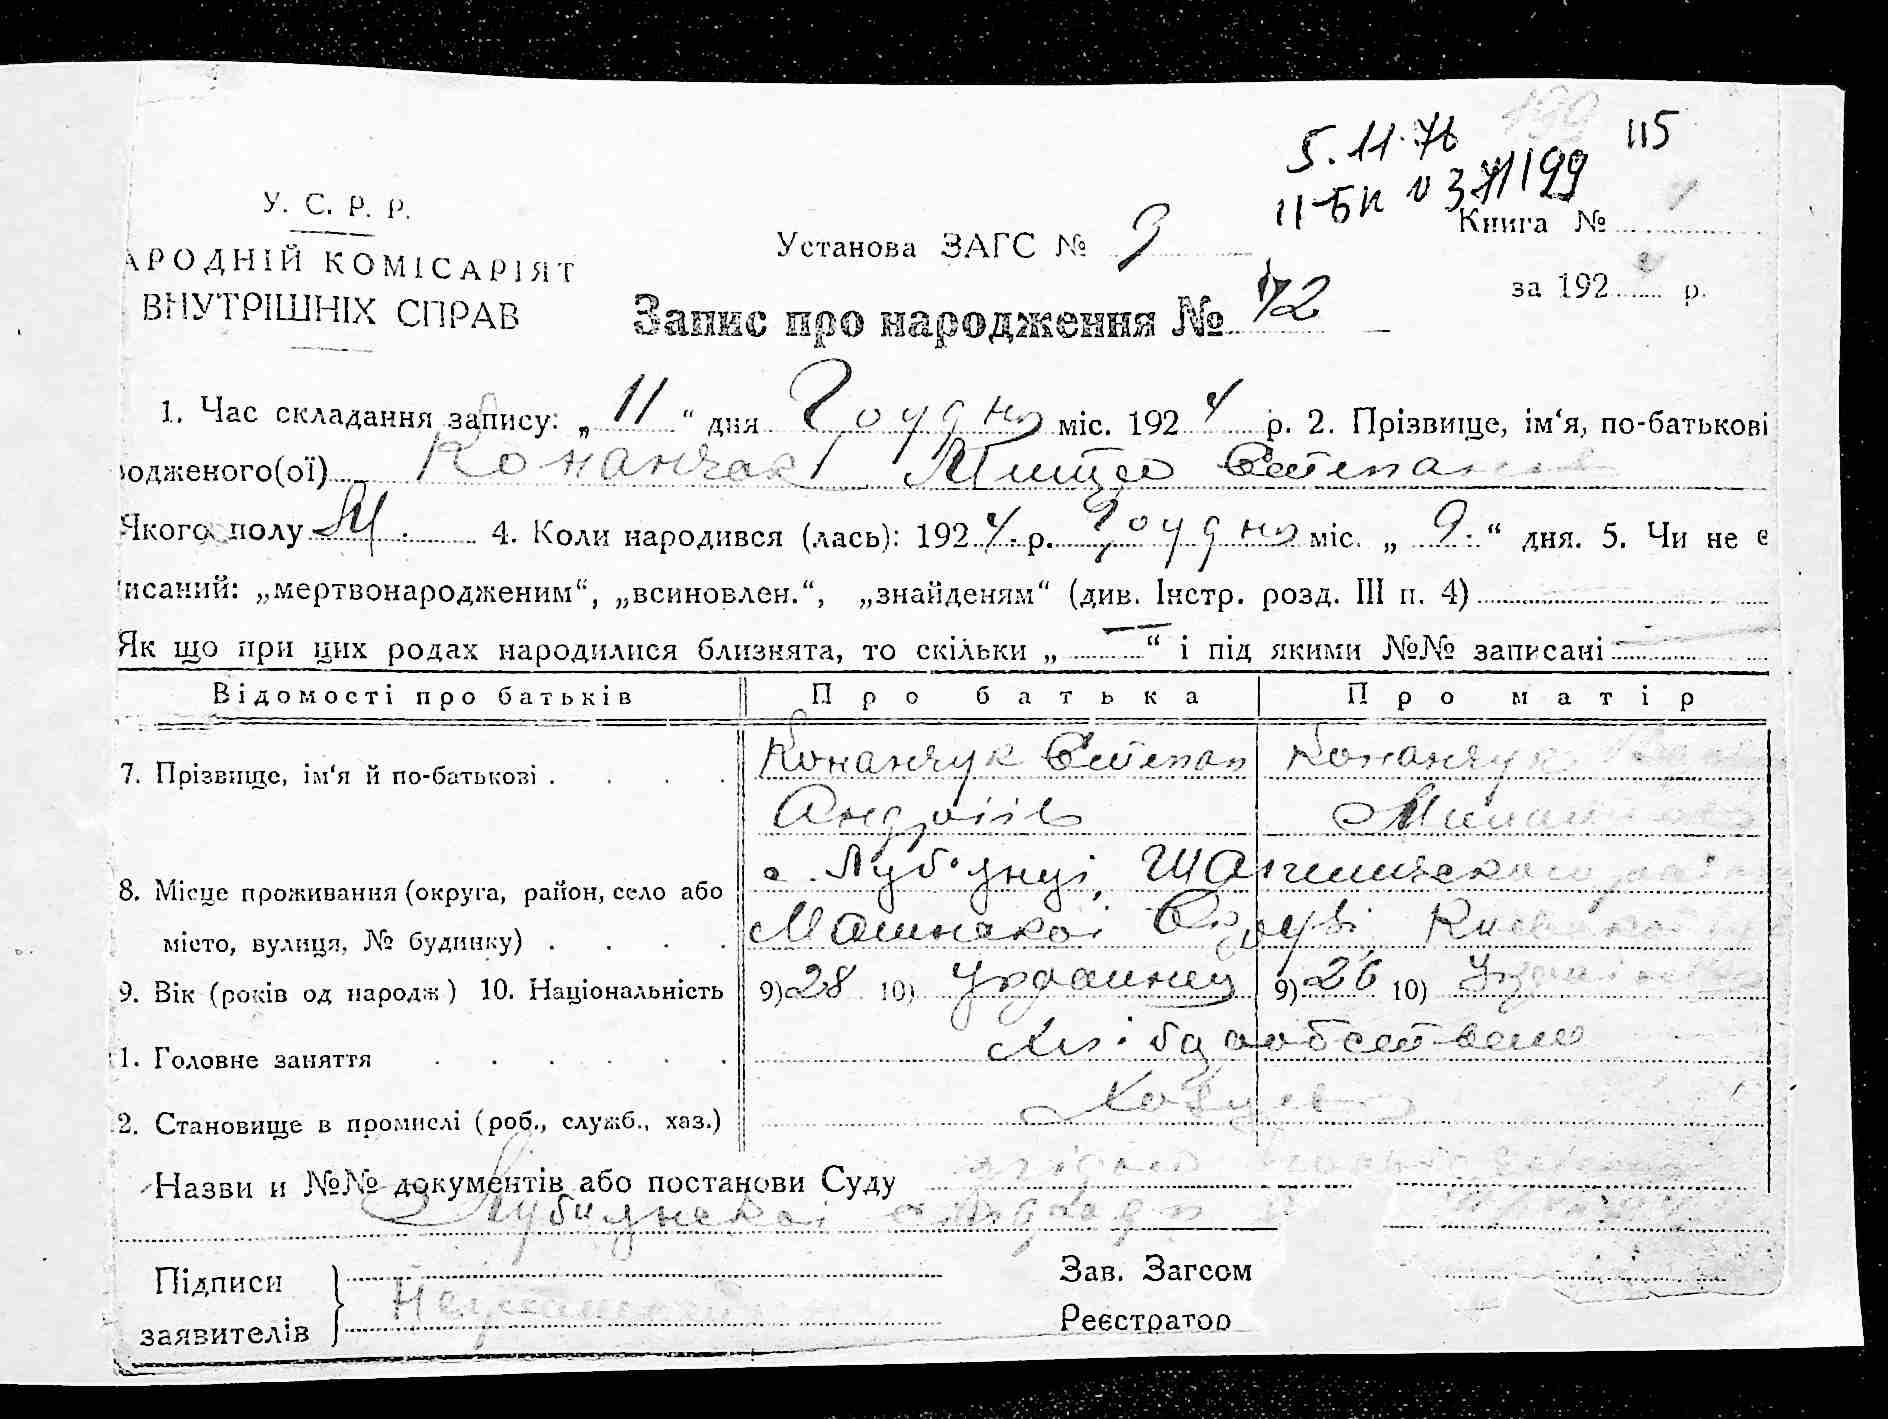 115
5.11.76
II-БК № 371199
У. С. Р. Р.
АРОДНІЙ КОМІСАРІЯТ
ВНУТРІШНІХ СПРАВ
Установа ЗАГС № 3
Книга №
за 192 4 р.
Запис про народження № 72
1. Час складання запису: „ 11 “ дня Грудня міс. 192 4 р. 2. Прізвище, ім‘я, по-батькові
одженого(ої) Конончак Митро Степанів
Якого полу М. 4. Коли народився (лась): 192 4. р. Грудня міс. „ 9. “ дня. 5. Чи не є
исаний: „мертвонародженим“, „всиновлен.“, „знайденям“ (див. Інстр. розд. III п. 4)
Як що при цих родах народилися близнята, то скільки „ — “ і під якими №№ записані
Відомості про батьків Про батька Про матір
7. Прізвище, ім‘я й по-батькові . . . . Конанчук Степан Конанчук
Андріів
8. Місце проживання (округа, район, село або с. Луб'янці,
місто, вулиця, № будинку) . . . . Округи, Київської
9. Вік (років од народж) 10. Національність 9) 28 10) Украинец 9) 26 10) Українка
1. Головне заняття . . . . . . Хлібдообство
2. Становище в промислі (роб., служб., хаз.) Хазуєв
Назви и №№ документів або постанови Суду
Лубиянскоі
Підписи
заявителів
Зав. Загсом
Реєстратор